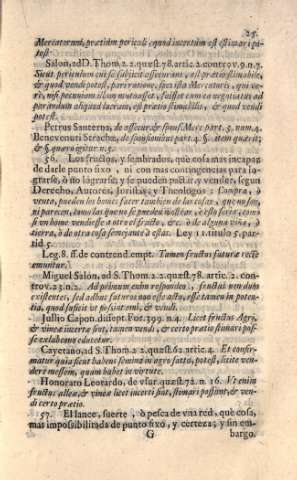 25.
Mercatorum, prætium periculi equod incertum est estimari po-
test.
Salon, ad D. Thom. 2. 2. quæst. 78. artic. 2. controv. 9. n. 7.
Sicut periculum cui se subijcit assecurans, est prætio estimabile,
& quod vendi potest, pari ratione, spes ista Mercatoris, qui va-
quod suscipit
& quod vendi
potest.
Petrus Santerna, de assecur. & spons. Merc. part. 3. num. 4.
Benevenuti Stracho, de sponsionib. part. 4. §. item quærit;
& §. quæro igitur n. 5.
56. Los fructos, y sembrados, què cosa mas incapaz
de darle punto fixo, ni con mas contingencias para lo-
grarse, ò no lograrse, y se pueden pactar, y vender, segun
Derecho, Autores, Juristas, y Theologos: Compra, ò
venta, pueden los homes facer tambien de las cosas, que no son,
ni parecen, como las que
se un home vendiesse a otro el fructo, &c. ò de alguna viña, ò
tierra, ò de otra cosa semejante à estas. Ley 11. titulo 5. par-
tid. 5.
Leg. 8. ff. de contrend. empt. Tamen fructus futuri rectè
emuntur.
Miguel Salon, ad S. Thom. 2. 2. quæst. 78. artic. 2. con-
trov. 23. n. 2. Ad primum enim respondeo, fructus non dum
existentes, sed adhuc futuros non esse actu, esse tamen in poten-
tia, quod sufficit ut possint emi, & vendi.
Julio Capon. discept. For. 399. n. 4. Licet fructus Agri,
& vineæ incertæ sint, tamen vendi, & certo prætio stimari pos-
se exlabemu edocetur.
Cayetano, ad S. Thom. 2. 2. quæst. 62. artic. 4. Et confir-
matur quia sicut habens semina in agro satto, potest, licitè vende-
re messem, quam habet in virtute.
Honorato Leotardo, de usur. quæst. 72. n. 16. Ut enim
fructus alleæ, & vineæ licet incerti sint, stimari possunt, & ven-
di certo prætio.
57. El lance, suerte, ò pesca de vna red, què cosa,
mas impossibilitada de punto fixo, y certeza; y sin em-
G bargo,